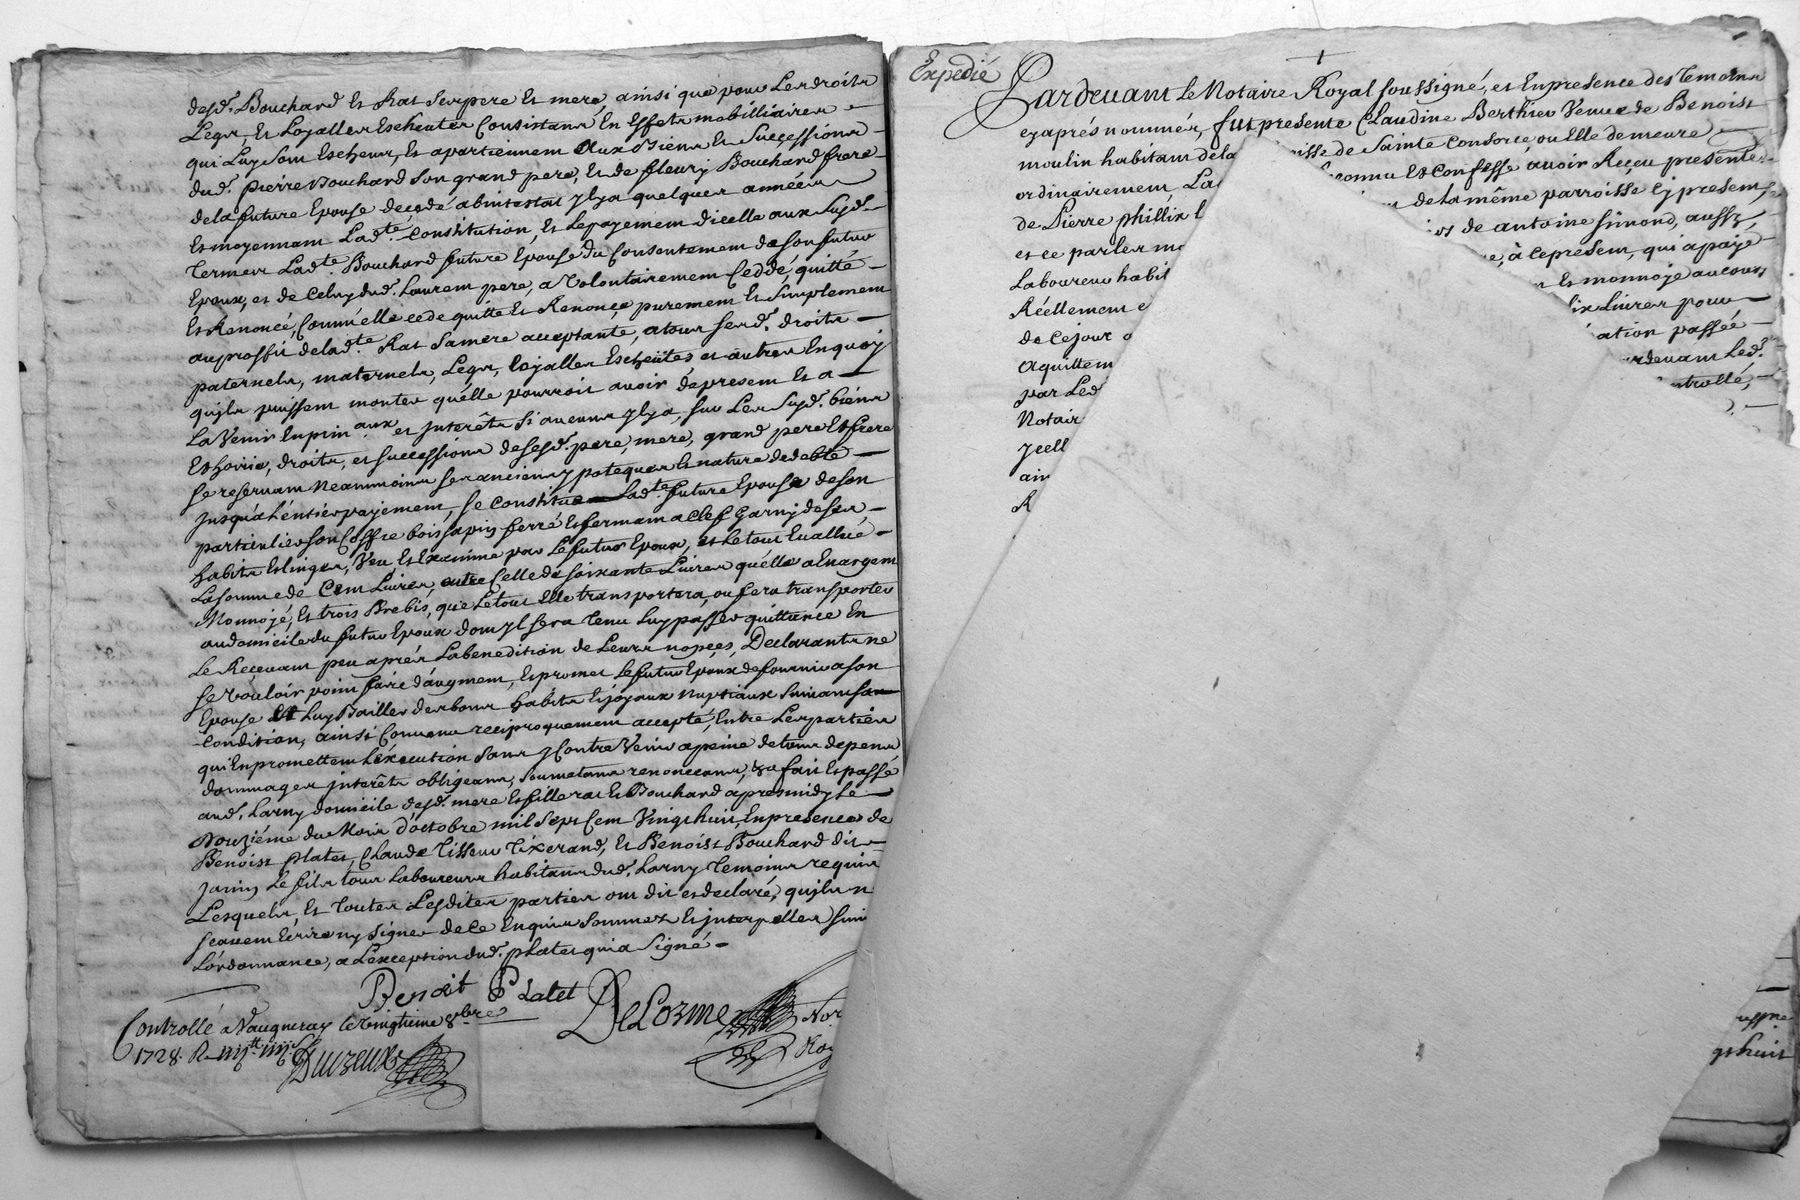 desd. Bouchard Et Rat Ses pere Et mere, ainsi que pour Les droits
Legs, Et Loyalles Escheutes Consistans En Effets mobilliaires
qui Luy Sont Escheus, Et apartiennent Aux Biens Et Successions
dud. Pierre Bouchard Son grand pere, Et de fleury Bouchard frere
de la future Epouse decedé abintestat Il y a quelques années
Et moyennant Lad.te Constitution, Et Le payement d'icelle aux Susd.
Termes Lad.te Bouchard future Epouse du Consentement de Son futur
Epoux, et de Celuy dud. Laurent pere, a Volontairement Ceddé, quitté
Et Renoncé, Comm'elle cede quitte Et Renonce purement Et Simplement
au proffit de lad.te Rat Sa mere acceptante, a tous Sesd. droits
paternels, maternels, Legs, loyalles Escheutes et autres En quoy
qu'ils puissent monter qu'elle pourroit avoir de present Et a
La Venir En prin.aux et Interêts Si aucuns Il y a, Sur Les Susd. biens
Et hoirie, droits, et Successions desesd. pere, mere, grand pere Et frere
Se reservant Neantmoins Ses anciens ypoteques Et nature de debte
Jusqu'à L'entier payement, Se Constitue Lad.te future Epouse de Son
particulier Son Coffre bois Sapin ferré Et fermant a Clef Garny de Ses
habits Et linges, Veu Et Examiné par Le futur Epoux, et Le tout Evallué
La Somme de Cent Livres, outre Celle de Soixante Livres qu'elle a En argent
Monnoyé, Et trois Brebis, que Le tout Elle transportera, ou fera transporter
au domicile du futur Epoux dont Il Sera Tenu Luy passer quittance En
Le Recevant peu aprés La benedition de Leurs nopces, Declarants ne
Se vouloir point faire d'augment, Et promet Le futur Epoux de fournir a Son
Epouse Et Luy Bailler de bons habits Et joyaux Nuptiaux Suivant Sa
Condition, ainsi Convenu reciproquement accepté, Entre Les parties
qui En promettent L'éxecution Sans y Contre Venir a peine de tous depens
dommages Interêts obligeans, Soumetans renonceans, &a fait Et passé
aud. Larny domicile desd. mere Et fille rat Et Bouchard apres midy Le
Douziéme du Mois d'octobre mil Sept Cent Vingt huit, En presence de
Benoist Platet, Claude Tisseur Tixerand, Et Benoist Bouchard dit
Janin Le fils tous Laboureurs habitans dud. Larny Temoins requis
Lesquels, Et Toutes Lesdites parties ont dit et declaré, qu'ils n
Scavent Ecrire ny Signer de ce Enquis Sommez Et interpelles Sui
L'ordonnance, a L'exception dud. platet qui a Signé
Benoit Platet DeLorme Not
Roy
Controllé a Vaugneray le Vingtieme 8bre
1728. R
Expedié
Pardevant Le Notaire Royal Soussigné, et En presence des Temoins
cy aprés nommés, fut presente Claudine Berthier Veuve de Benoist
moulin habitant de la oisse de Sainte Consorce, ou Elle demeure
ordinairement, La econnu Et Confessé avoir Receu presente
de Pierre phillix l de La même parroisse Cy present
et ce par les ma de antoine Simond, aussy
Laboureur habit e, à ce present, qui a payé
Réellement e Et monnoye au cours
de ce jour dix Livres pour
Aquittem ation passée
par Led rdevant Led.
Notair ntrollé,
Jcell
ain
R
gt huit